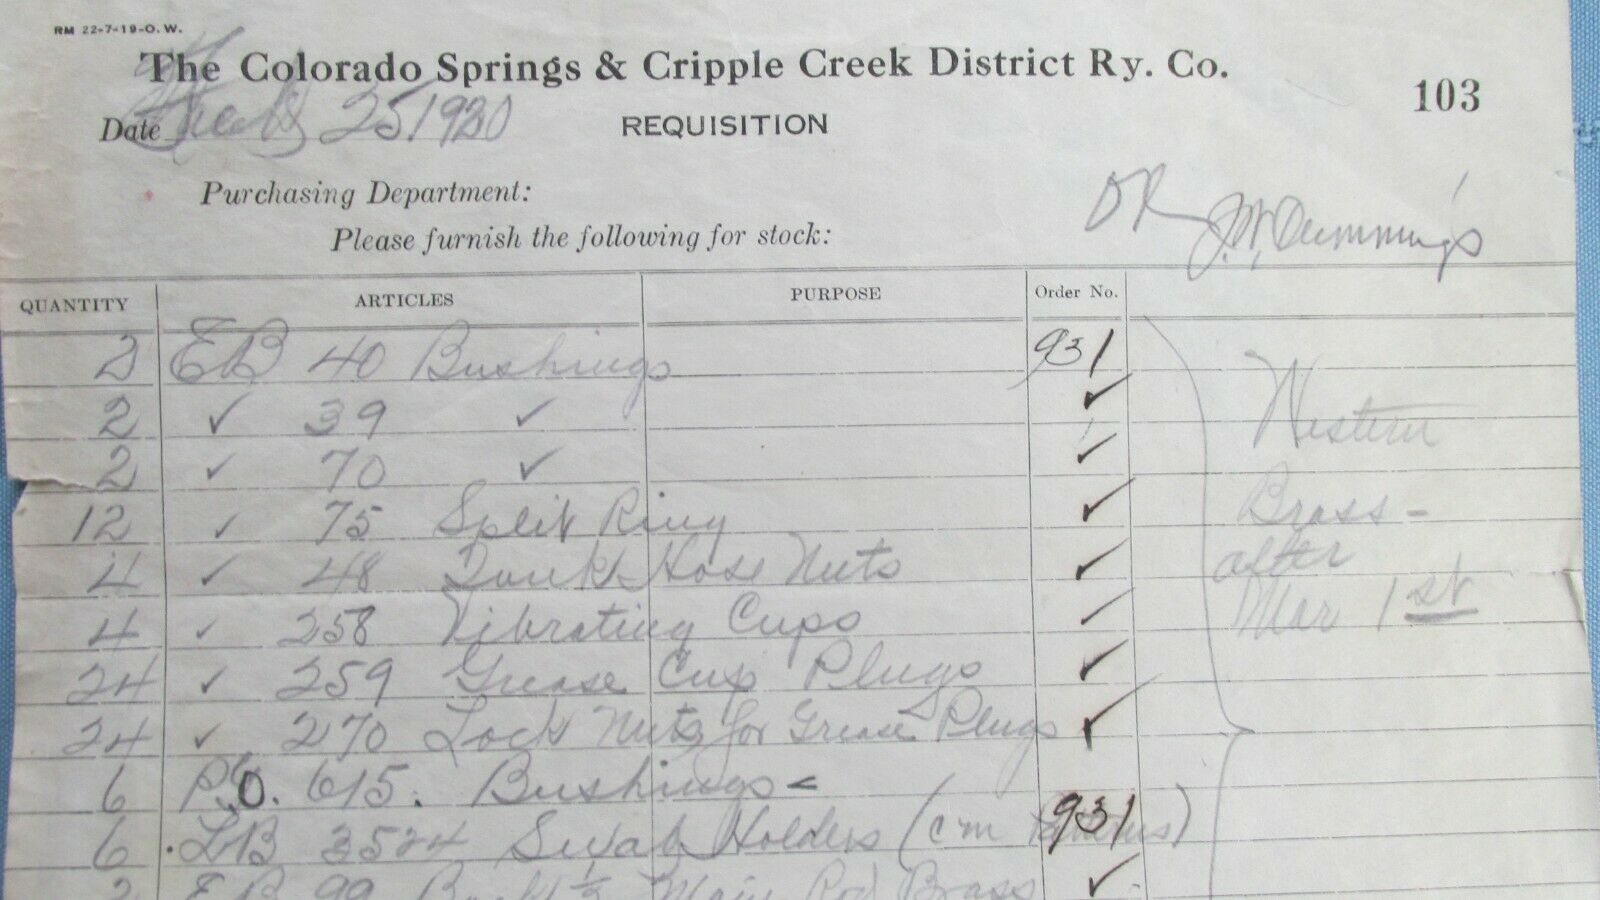 RM 22-7-19-O. W.
The Colorado Springs & Cripple Creek District Ry. Co.
103
Date 25 1920
REQUISITION
Purchasing Department:
Please furnish the following for stock:
OK J.W. Cummings
QUANTITY ARTICLES PURPOSE Order No.
2 EB 40 Bushings 931
2 ✓ 39 ✓ ✓
2 ✓ 70 ✓ ✓
12 ✓ 75 Split Ring ✓
4 ✓ 48 Tank Hose Nuts ✓
4 ✓ 258 Vibrating Cups ✓
24 ✓ 259 Grease Cup Plugs ✓
24 ✓ 270 Lock Nuts for Grease Plugs ✓
6 P.O. 615. Bushings
6 LB 3524 Swab Holders (cm 931
2 EB 99 Back ½ Main Rod Brass ✓
Western
Brass -
after
Mar 1st